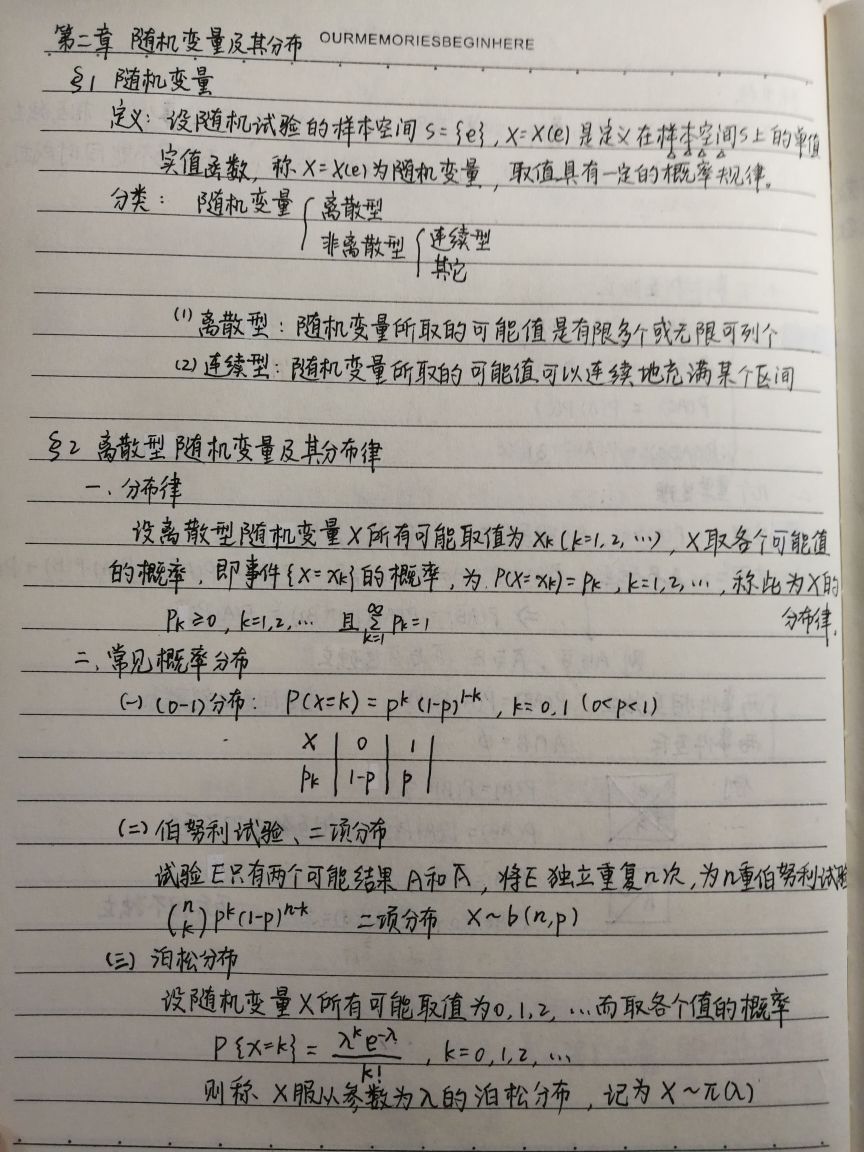 第二章 随机变量及其分布 OURMEMORIESBEGINHERE
§1 随机变量
定义：设随机试验的样本空间S={e}，X=X(e)是定义在样本空间S上的单值
实值函数，称X=X(e)为随机变量，取值具有一定的概率规律。
分类： 随机变量 { 离散型
非离散型 { 连续型
其它
(1) 离散型：随机变量所取的可能值是有限多个或无限可列个
(2) 连续型：随机变量所取的可能值可以连续地充满某个区间
§2 离散型随机变量及其分布律
一、分布律
设离散型随机变量X所有可能取值为xₖ(k=1,2,…)，X取各个可能值
的概率，即事件{X=xₖ}的概率，为P(X=xₖ)=pₖ，k=1,2,…，称此为X的
分布律.
pₖ≥0，k=1,2,… 且 ∑_{k=1}^{∞} pₖ=1
二、常见概率分布
(一) (0-1)分布： P(X=k)=p^k(1-p)^{1-k}，k=0,1 (0<p<1)
X | 0 | 1 |
pₖ | 1-p | p |
(二) 伯努利试验、二项分布
试验E只有两个可能结果A和A̅，将E独立重复n次，为n重伯努利试验
(n k) p^k(1-p)^{n-k} 二项分布 X~b(n,p)
(三) 泊松分布
设随机变量X所有可能取值为0,1,2,…而取各个值的概率
P{X=k}=λ^k e^{-λ}/k!，k=0,1,2,…
则称X服从参数为λ的泊松分布，记为X~π(λ)